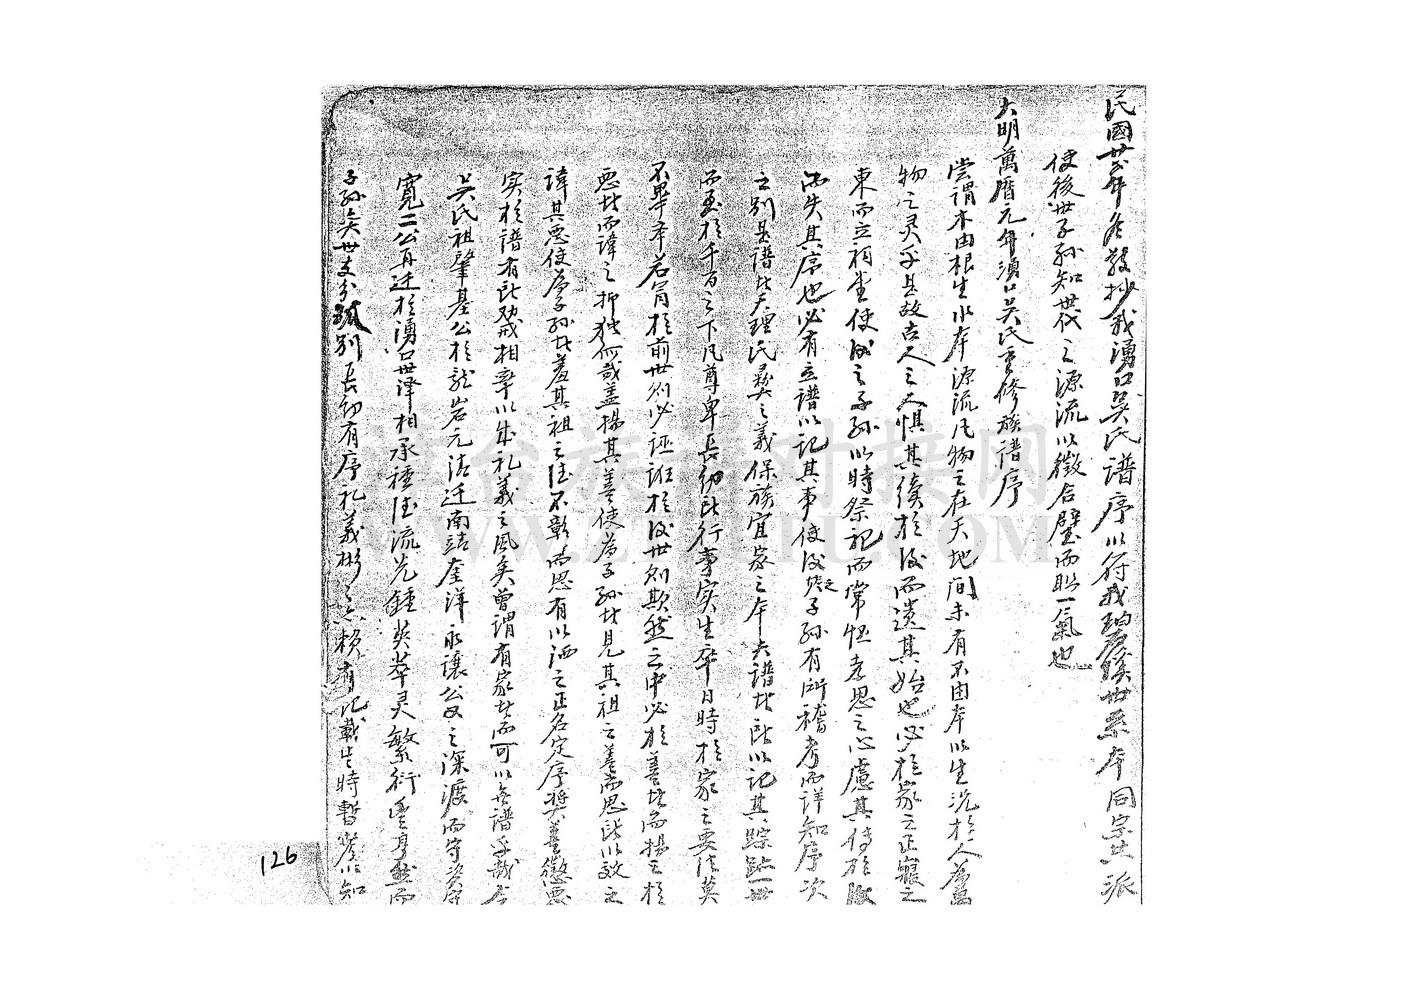 民國廿年冬敬抄我湧口吳氏譜序以符我珀溪世系本同宗共派
使後世子孫知世代之源流以徵合璧而眧一氣也
大明萬曆元年湧口吳氏重修族譜序
尝謂木由根生水本源流凡物之在天地間未有不由本以生況於人為萬
物之灵乎是故古人之又惧其續於後而遺其始也必於家之正寢之
東而立祠堂使後之子孫以時祭祀而常恒孝思之心慮其傳於後
而失其序也必有立譜以記其事使後之子孫有所稽考而詳知序次
之別是譜者天理民彛之義保族宜家之本夫譜者所以記其踪跡一世
而至於千百之下凡尊卑長幼所行事实生卒日時於家之要法莫
不畢本若冐於前世則必誣誑於後世則欺然之中必於善者而揚之於
悪者而諱之抑独何哉盖揚其善使為子孫者見其祖之善而思所以效之
諱其悪使為子孫者羞其祖之德不彰而思有以洒之正名定序奬善懲悪
实於譜有所勸戒相率以成礼義之風矣曾謂有家者而可以無譜乎哉
吳氏祖肇基公於龍岩元結迁南靖奎洋永讓公又之深渡而守
寬二公再迁於湧口世泽相承種德流光鍾英萃灵繁衍豊亨然而
子孫矣世支分派別長幼有序礼義彬之亦賴有記載失時暫以知
126